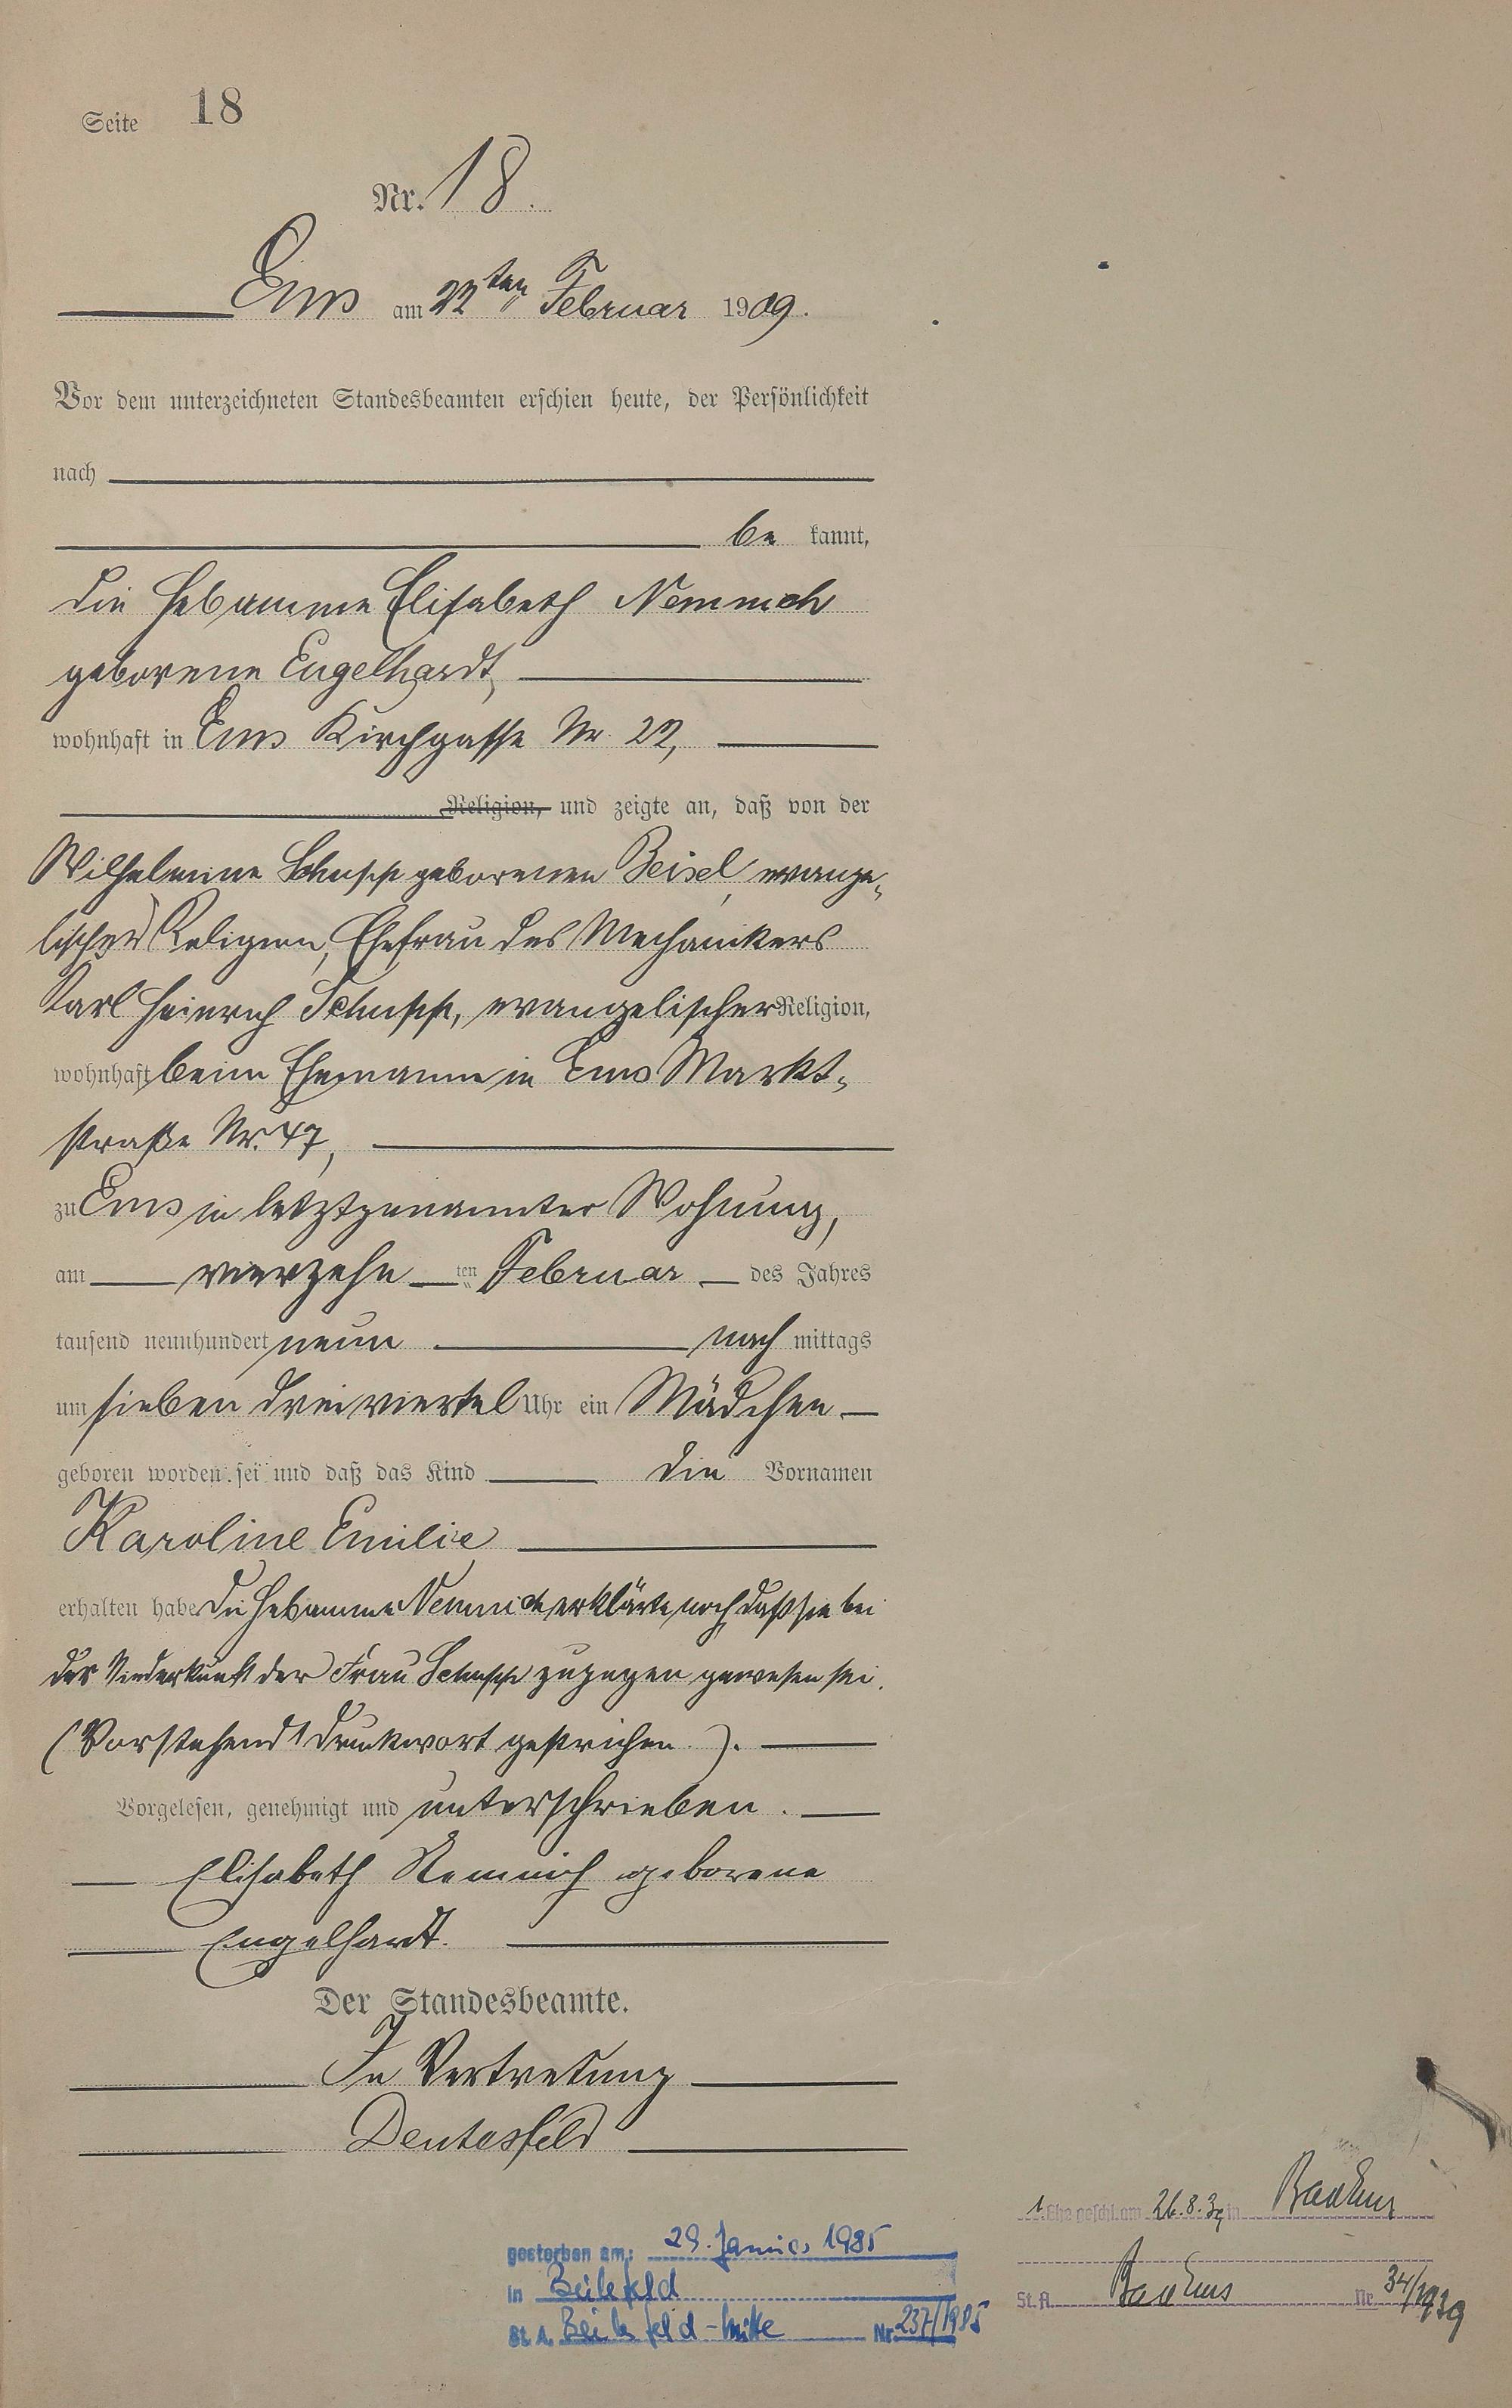 Seite 18
Nr. 18.
Ems am 22ten Februar 1909.
Vor dem unterzeichneten Standesbeamten erschien heute, der Persönlichkeit
nach
be kannt,
die Hebamme Elisabeth Nemnich
geborene Engelhardt,
wohnhaft in Ems Kirchgasse Nr. 22,
Religion, und zeigte an, daß von der
Wilhelmine Schupp geborenen Beisel, evange-
lischer Religion, Ehefrau des Mechanikers
Karl Heinrich Schupp, evangelischer Religion,
wohnhaft beim Ehemanne in Ems Markt-
straße Nr. 47,
zu Ems in letztgenannter Wohnung,
am vierzehn ten Februar des Jahres
tausend neunhundert neun nach mittags
um sieben drei viertel Uhr ein Mädchen
geboren worden sei und daß das Kind die Vornamen
Karoline Emilie
erhalten habe. Die Hebamme Nemnich erklärte noch, daß sie bei
der Niederkunft der Frau Schupp zugegen gewesen sei.
(Vorstehend 1 Druckwort gestrichen.).
Vorgelesen, genehmigt und unterschrieben.
Elisabeth Nemnich geborene
Engelhardt.
Der Standesbeamte.
In Vertretung
1. Ehe geschl. am 26.8.39 in Bad Ems
St. A. Bad Ems Nr. 34/1939
gestorben am: 29. Januar 1985
in Bielefeld
St. A. Bielefeld-Mitte Nr. 237/1985